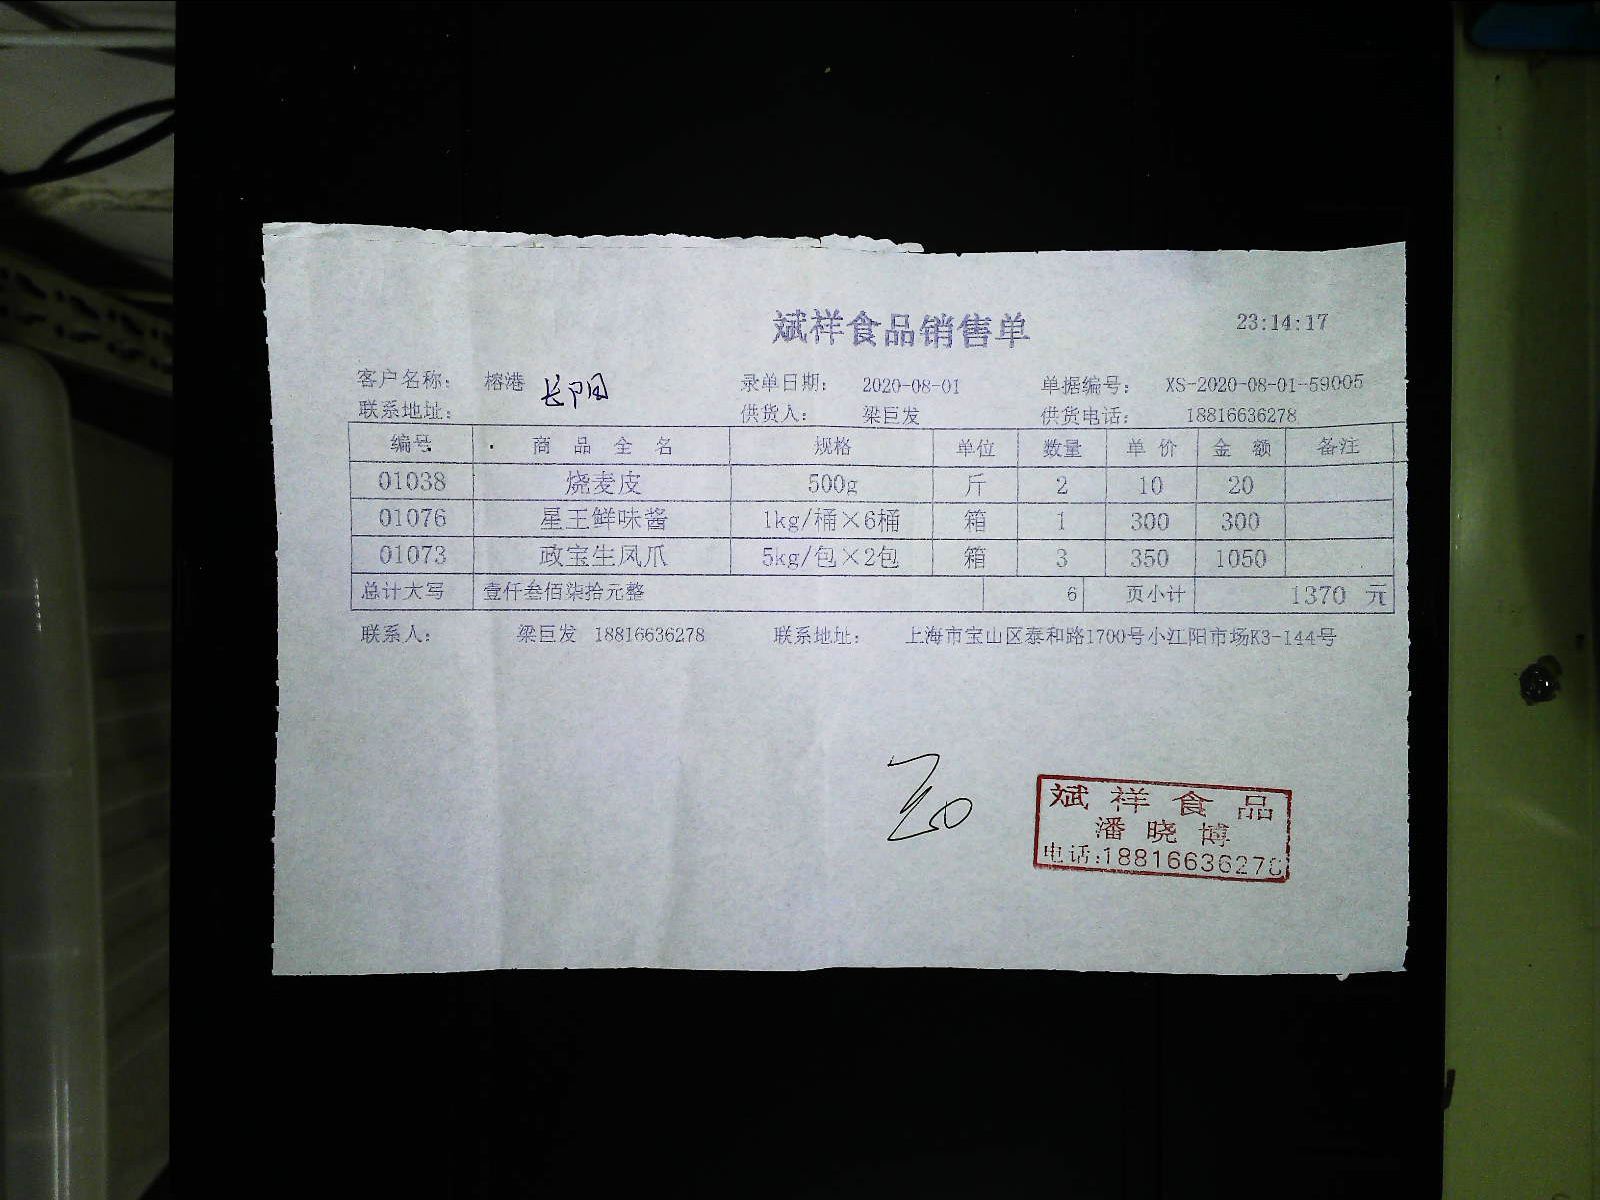 斌祥食品销售单 23:14:17
客户名称: 榕港 长阳 录单日期: 2020-08-01 单据编号: XS-2020-08-01-59005
联系地址: 供货人: 梁巨发 供货电话: 18816636278
编号 商品全名 规格 单位 数量 单价 金额 备注
01038 烧麦皮 500g 斤 2 10 20
01076 星王鲜味酱 1kg/桶×6桶 箱 1 300 300
01073 政宝生凤爪 5kg/包×2包 箱 3 350 1050
总计大写 壹仟叁佰柒拾元整 6 页小计 1370 元
联系人: 梁巨发 18816636278 联系地址: 上海市宝山区泰和路1700号小江阳市场K3-144号
斌祥食品
潘晓博
电话:18816636278